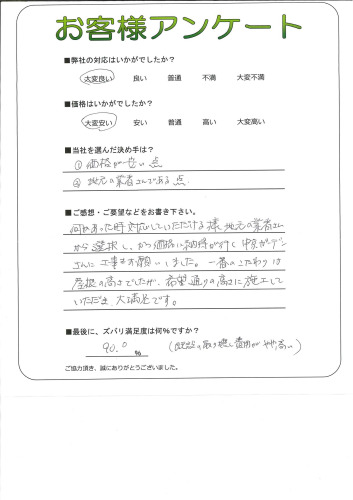 お客様アンケート
■弊社の対応はいかがでしたか?
大変良い 良い 普通 不満 大変不満
■価格はいかがでしたか?
大変安い 安い 普通 高い 大変高い
■当社を選んだ決め手は?
① 価格が安い点
② 地元の業者さんである点
■ご感想・ご要望などをお書き下さい。
何かあった時対応していただける様 地元の業者さん
から選択し、かつ価格に納得が行く
さんに工事をお願いしました。一番のこだわりは
屋根の高さでしたが、希望通りの高さに施工して
いただき大満足です。
■最後に、ズバリ満足度は何%ですか?
90.0 %
(既設の取り壊し費用がやや高い)
ご協力頂き、誠にありがとうございました。